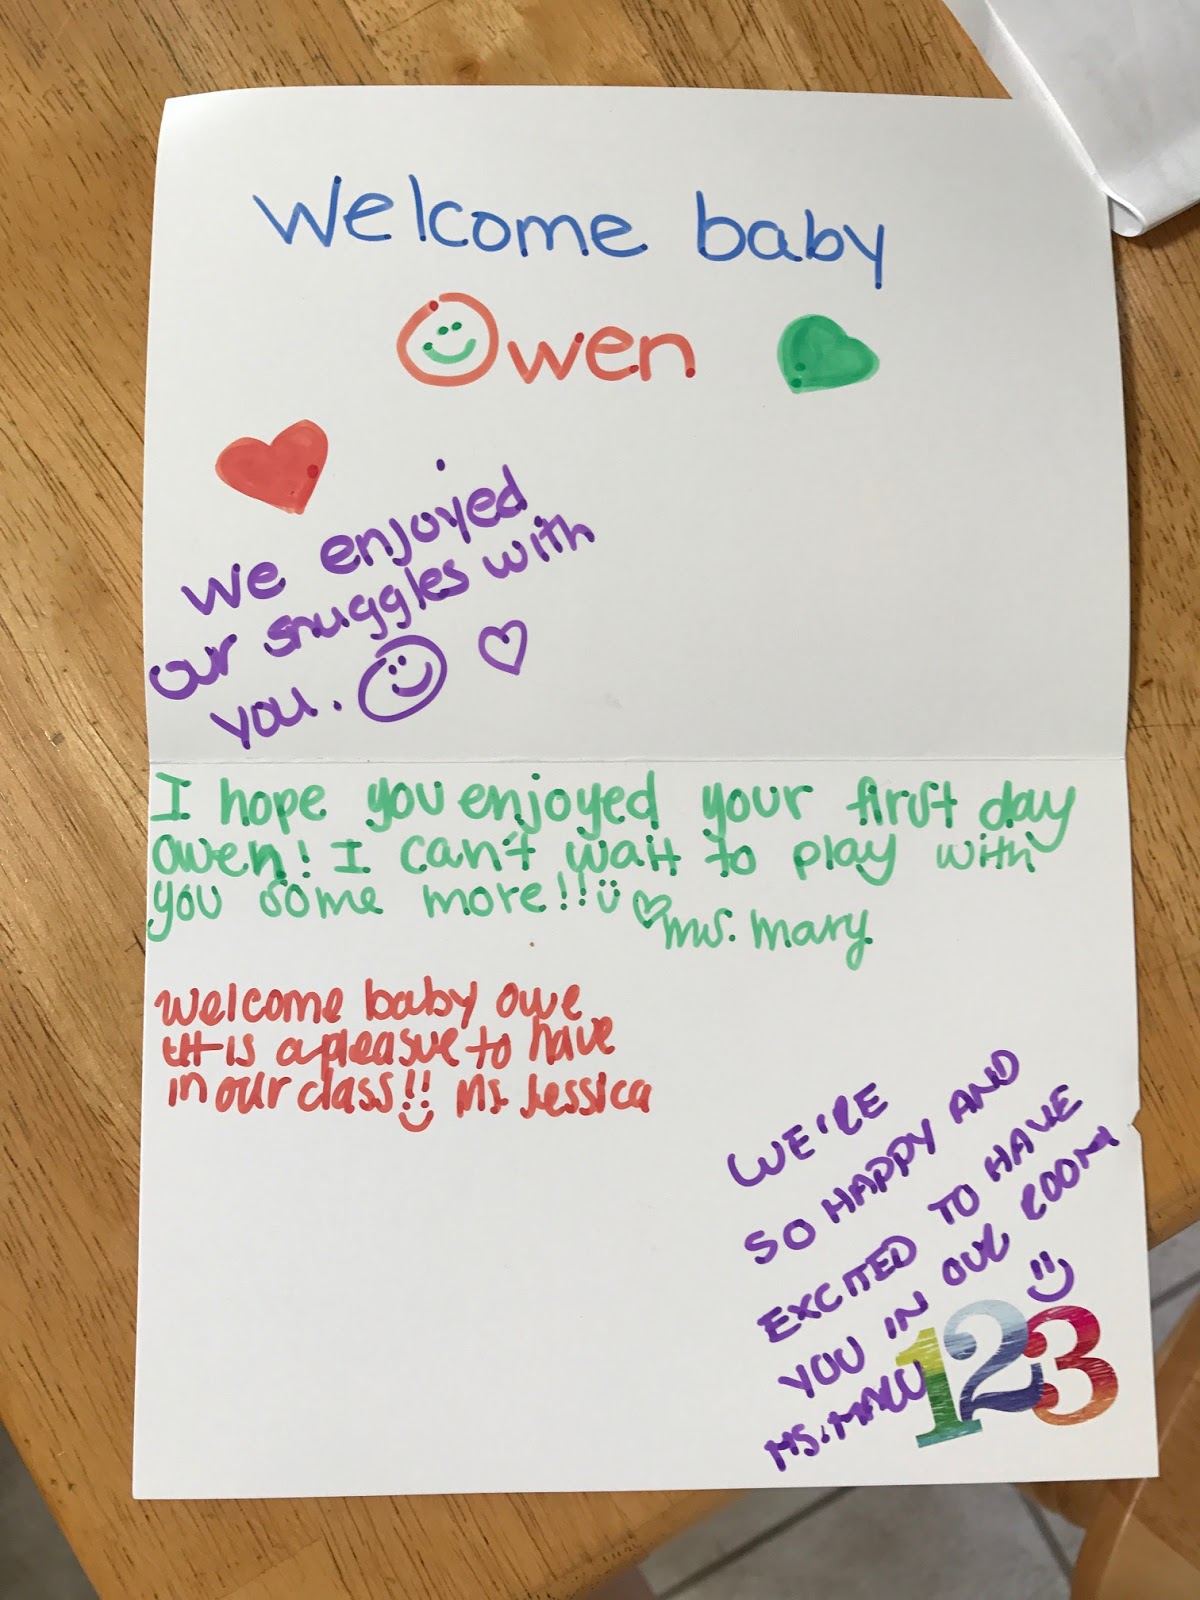 Welcome baby
Owen
We enjoyed
our snuggles with
you.
I hope you enjoyed your first day
Owen! I can't wait to play with
you some more!!
ms. mary
Welcome baby owe
is a pleasue to have
in our class!! Ms. Jessica
WE'RE
SO HAPPY AND
EXCITED TO HAVE
YOU IN OUR ROOM
MS.
123